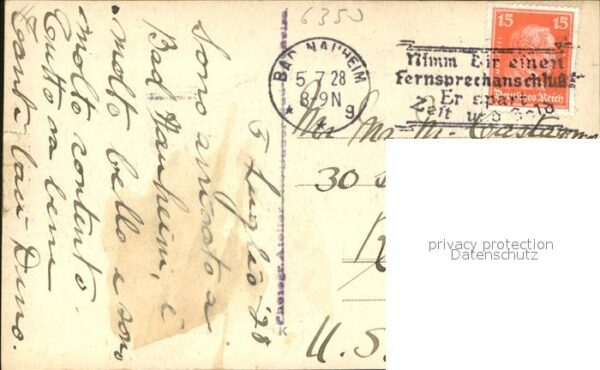 6350
BAD NAUHEIM
5.7.28
8-9N
* * g
Nimm Dir einen
Fernsprechanschluß
Er spart
Zeit und Geld
15 15
Deutsches Reich
5 Luglio '28
Sono arrivato a
Bad Nauheim, è
molto bello e sono
molto contento.
Tutto va bene
Tanti baci Dino.
Photogr. Atelier
K
Mr
30
U.S.
privacy protection
Datenschutz